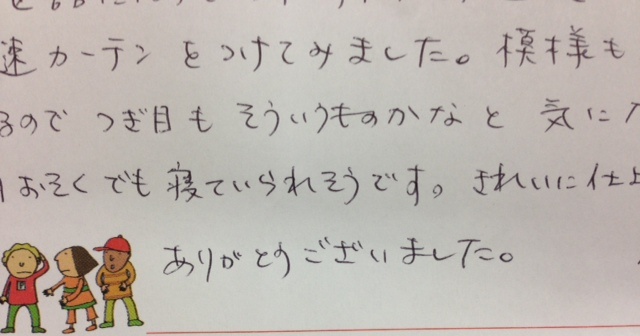 速カーテンをつけてみました。模様も
るので つぎ目も そういうものかなと 気に
おそくでも寝ていられそうです。きれいに仕上
ありがとうございました。